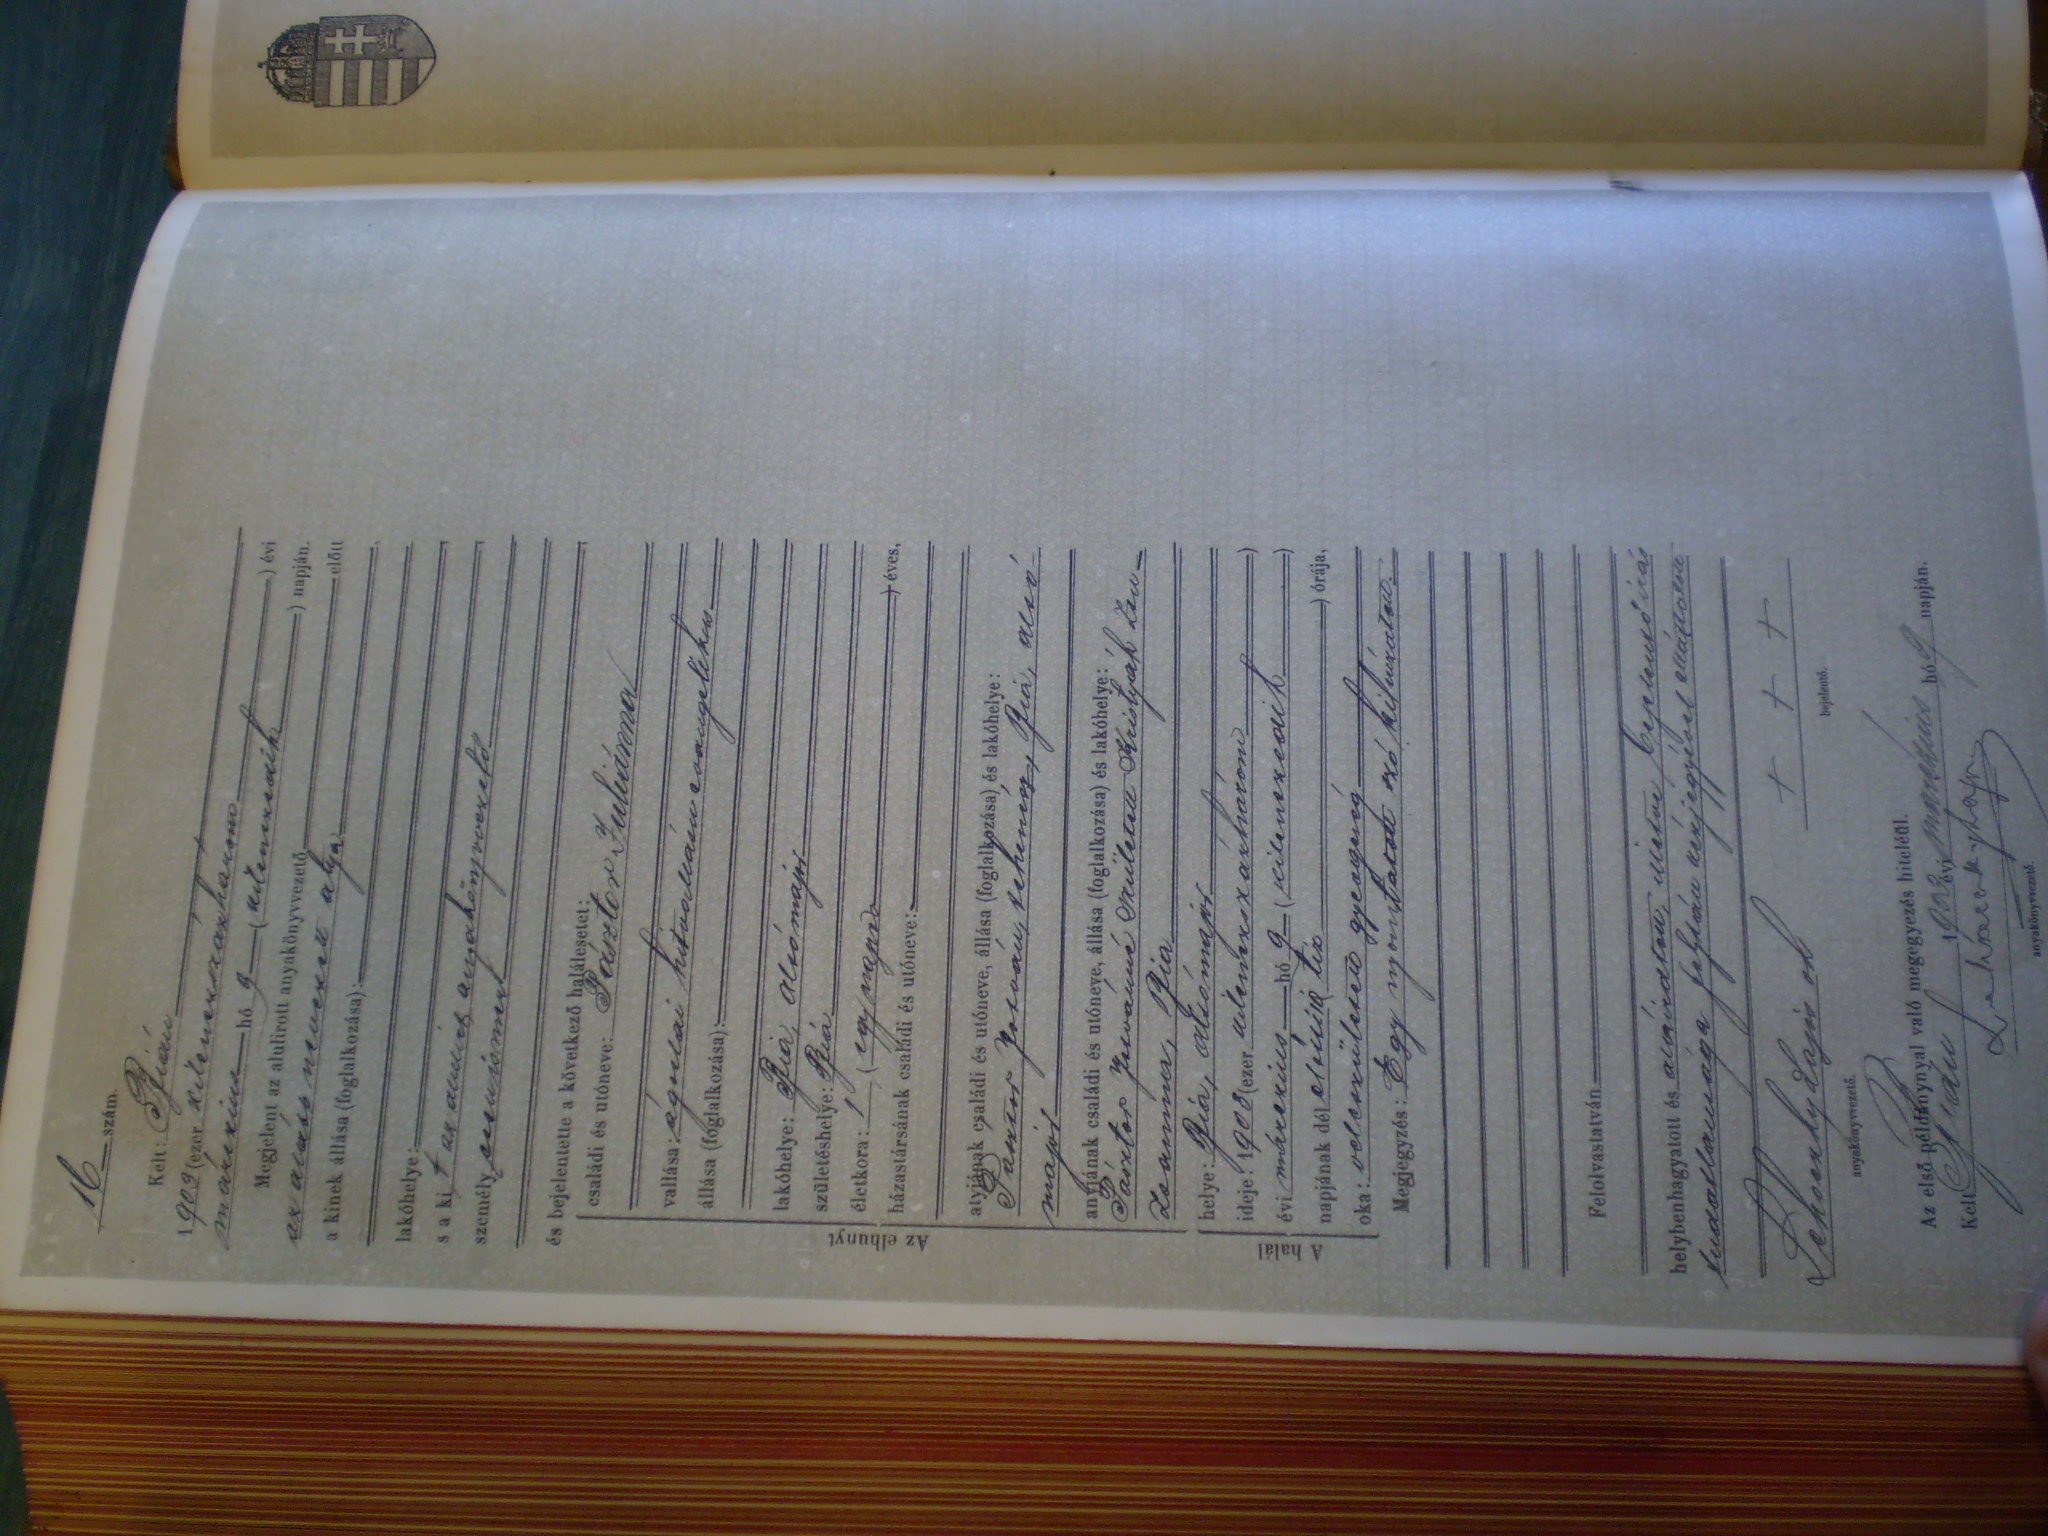 16 szám.
Kelt: Bián
1903 (ezer kilenczszázhárom
márczius hó 9 (kilenczedik) évi
) napján.
Megjelent az alulirott anyakönyvezető előtt
az alásó nemzeti atya
a kinek állása (foglalkozása):
lakóhelye:
s a ki, t az alulírt anyakönyvvezető
személyesen ismer
és bejelentette a következő halálesetet:
Az elhunyt
családi és utóneve: Pásztor Juliánna
vallása: ágostai hitvallású evangélikus
állása (foglalkozása):
lakóhelye: Bia, alsómajor
születéshelye: Bia
életkora: 1 (egy napos) éves,
házastársának családi és utóneve:
atyjának családi és utóneve, állása (foglalkozása) és lakóhelye:
Pásztor István, tehenész, Bia, alsó
major
anyjának családi és utóneve, állása (foglalkozása) és lakóhelye:
Pásztor Istvánné született Kristyák Zsu-
zsanna, Bia
A halál
helye: Bia, alsómajor
ideje: 1903 (ezer kilenczszázhárom)
évi márczius hó 9 (kilenczedik)
napjának dél előtti tíz ) órája,
oka: veleszületett gyengeség
Megjegyzés: Egy nyomtatott szó kihúzatott.
Felolvastatván
helybenhagyatott és aláíratott, illetve bejelentő írás
tudatlansága folytán kézjegyével ellátatott
Lehoczky Lajos
anyakönyvvezető.
+ + +
bejelentő.
Az első példánnyal való megegyezés hiteléül.
Kelt Bián 1903 évi márczius hó 9 napján.
Lehoczky Lajos
anyakönyvvezető.